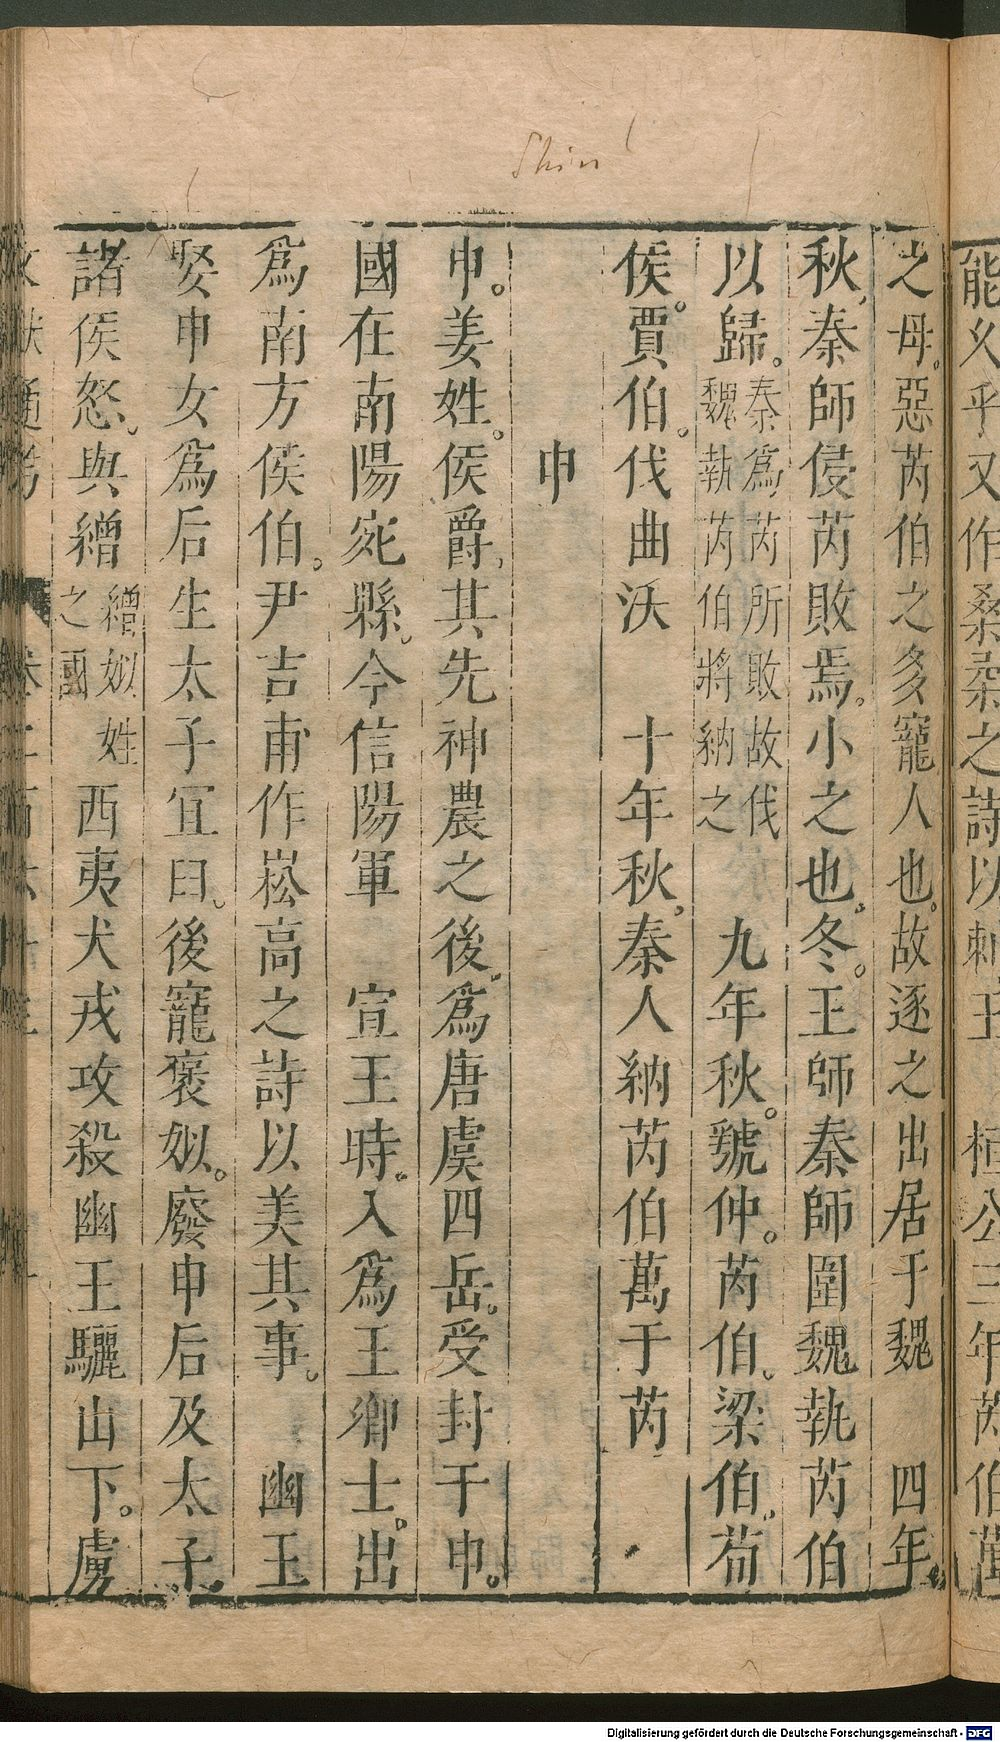 能久乎又作桑柔之詩以刺王 桓公三年芮伯萬
之母惡芮伯之多寵人也故逐之出居于魏 四年
秋秦師侵芮敗焉小之也冬王師秦師圍魏執芮伯
以歸秦為芮所敗故伐魏執芮伯將納之 九年秋虢仲芮伯梁伯荀
侯賈伯伐曲沃 十年秋秦人納芮伯萬于芮
申
申姜姓侯爵其先神農之後為唐虞四岳受封于申
國在南陽宛縣今信陽軍 宣王時入為王卿士出
為南方侯伯尹吉甫作崧高之詩以美其事 幽王
娶申女為后生太子宜臼後寵褒姒廢申后及太子
諸侯怒與繒繒姒姓之國西夷犬戎攻殺幽王驪山下虜
Shin
Digitalisierung gefördert durch die Deutsche Forschungsgemeinschaft - DFG